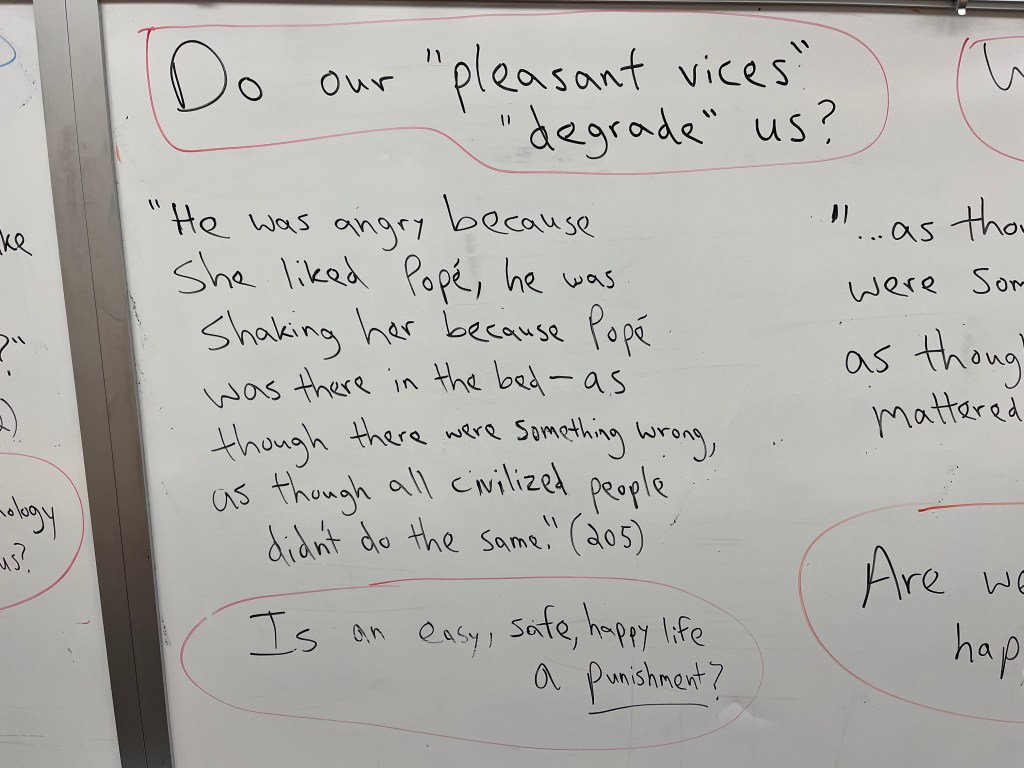 Do our "pleasant vices"
"degrade" us?
"He was angry because
She liked Popé, he was
Shaking her because Popé
was there in the bed—as
though there were something wrong,
as though all civilized people
didn't do the same." (205)
Is an easy, safe, happy life
a punishment?
ke
?"
2)
nology
us?
"...as thou
were som
as though
mattered
Are we
hap